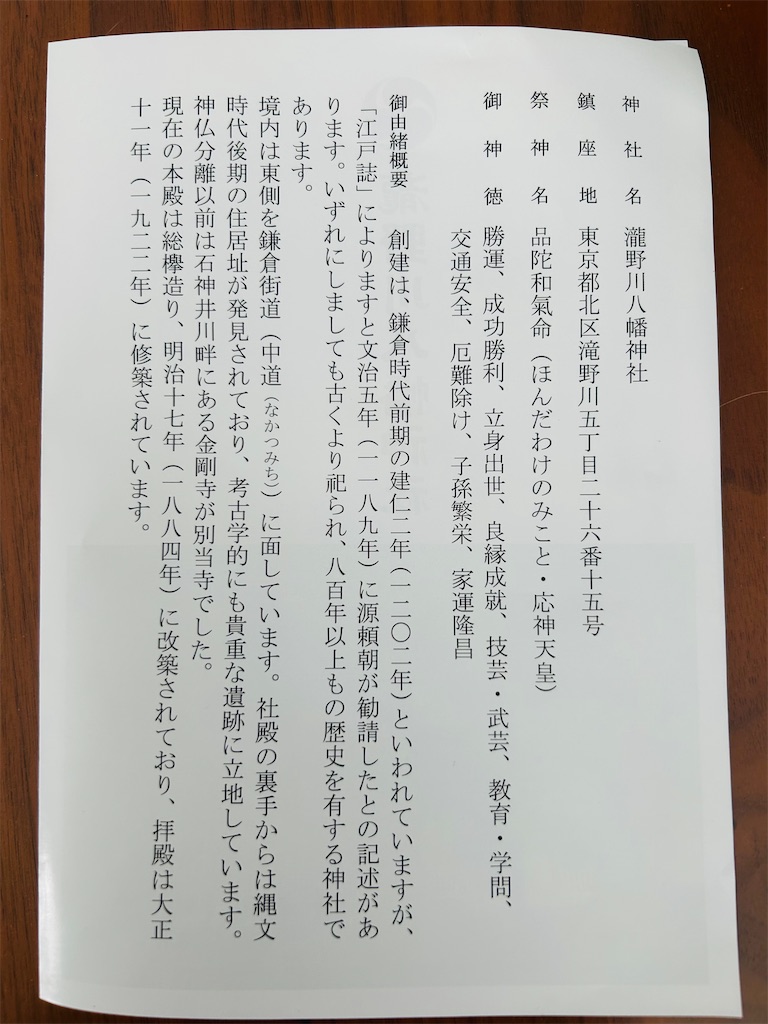 神社名　瀧野川八幡神社
鎮座地　東京都北区滝野川五丁目二十六番十五号
祭神名　品陀和氣命（ほんだわけのみこと・応神天皇）
御神徳　勝運、成功勝利、立身出世、良縁成就、技芸・武芸、教育・学問、
交通安全、厄難除け、子孫繁栄、家運隆昌
御由緒概要　創建は、鎌倉時代前期の建仁二年（一二〇二年）といわれていますが、
「江戸誌」によりますと文治五年（一一八九年）に源頼朝が勧請したとの記述があ
ります。いずれにしましても古くより祀られ、八百年以上もの歴史を有する神社で
あります。
境内は東側を鎌倉街道（中道（なかつみち））に面しています。社殿の裏手からは縄文
時代後期の住居址が発見されており、考古学的にも貴重な遺跡に立地しています。
神仏分離以前は石神井川畔にある金剛寺が別当寺でした。
現在の本殿は総欅造り、明治十七年（一八八四年）に改築されており、拝殿は大正
十一年（一九二二年）に修築されています。